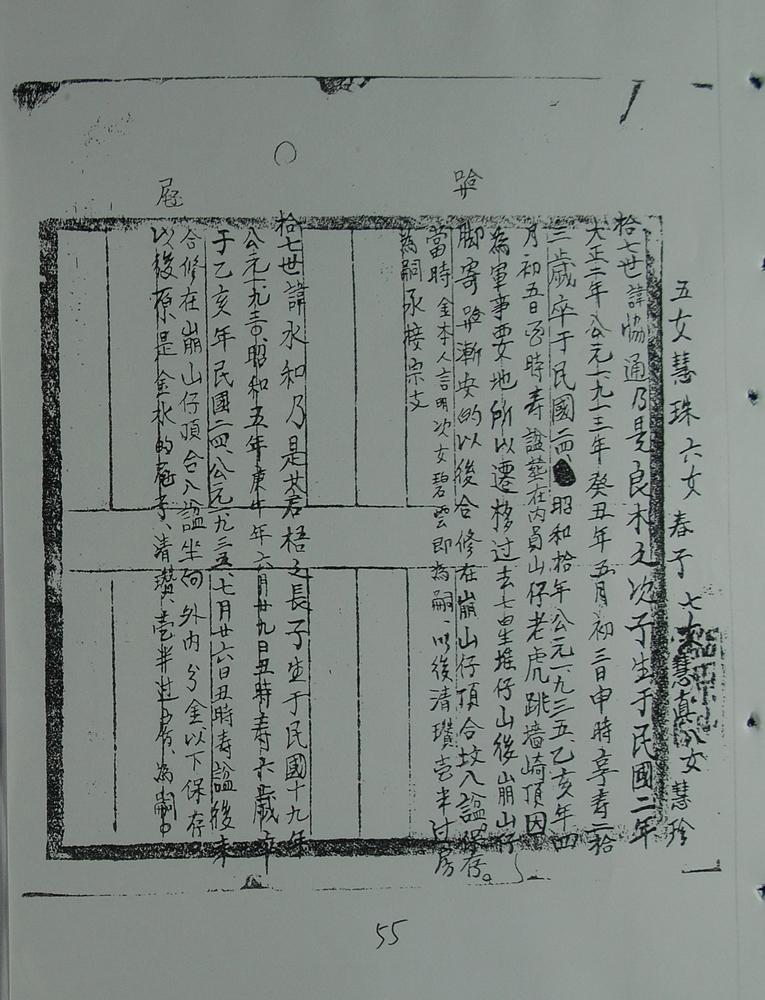 五女慧珠六女春子七女慧真八女慧珍
拾七世諱協通乃是良木之次子生于民國二年
大正二年公元一九一三年癸丑年五月初三日申時享壽二拾
三歲卒于民國二四昭和拾年公元一九三五乙亥年四
月初五日酉時壽謚葬在內員山仔老虎跳墻崎頂因
為軍事要地所以遷移过去七星堆仔山後崩山仔
脚寄漸安的以後合修在崩山仔頂合坟入謚保存。
當時金本人言明次女碧雲即為嗣、以後清瓚壹半过房
為嗣承接宗支
拾七世諱水和乃是基梧之長子生于民國十九年
公元一九三昭和五年庚午年六月廿九日丑時壽六歲卒
于乙亥年民國二四、公元一九三五、七月廿六日丑時壽謚後來
合修在崩山仔頂合入謚坐向外內分金以下保存。
以後原是金水的子、清瓚、壹半过房為嗣。
55